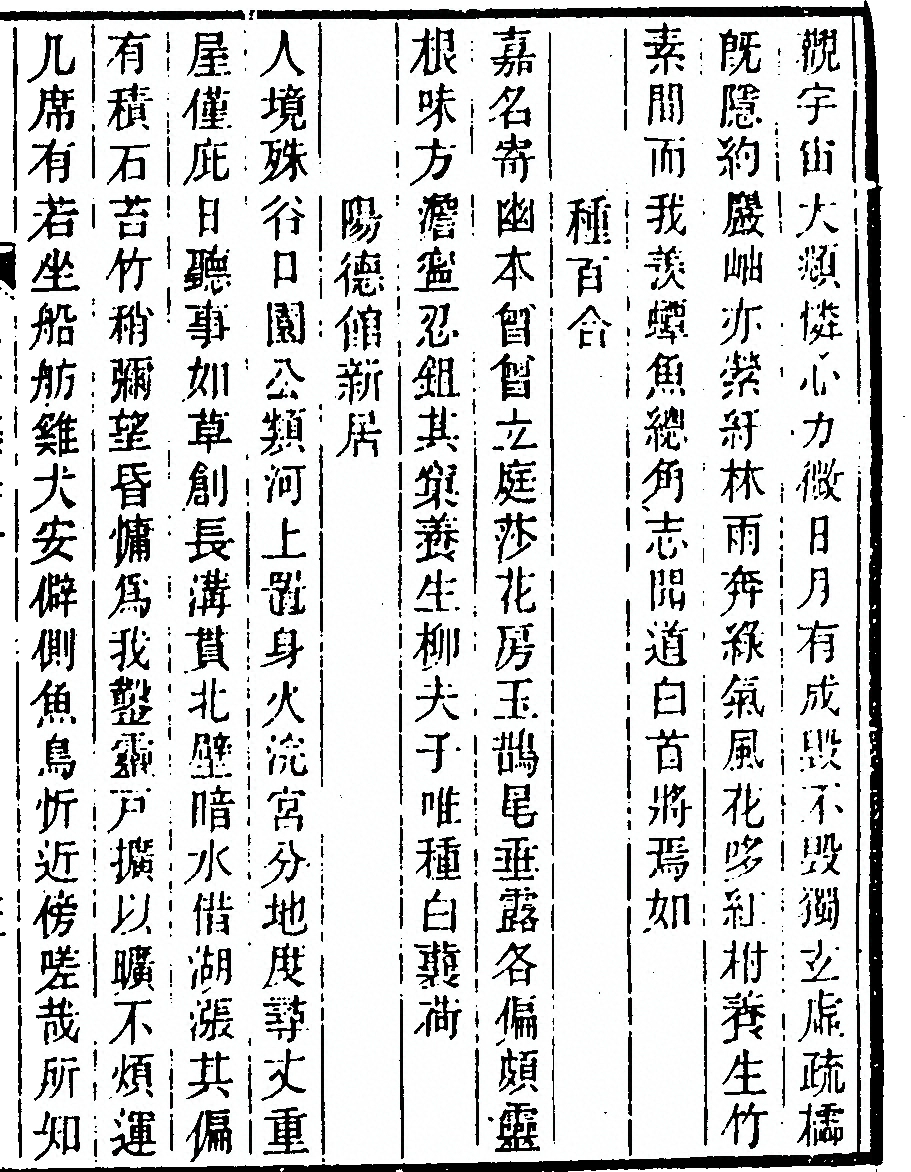 觀宇宙大類憐心力微日月有成毀不毀獨立虛疏橘
既隱約巖岫亦縈紆林雨奔綠氣風花哆紅柎養生竹
素間而我羨蟫魚總角志聞道白首將焉如
種百合
嘉名寄幽本曾曾立庭莎花房玉鵲尾垂露各偏頗靈
根味方澹蜜忍鉏其窠養生柳夫子唯種白蘘荷
陽德館新居
人境殊谷口園公類河上置身火浣宮分地度尋丈重
屋僅庇日聽事如草創長溝貫北壁暗水借湖漲其偏
有積石苔竹稍彌望昏慵為我鑿靈戸擴以曠不煩運
几席有若坐船舫雞犬安僻側魚鳥忻近傍嗟哉所知